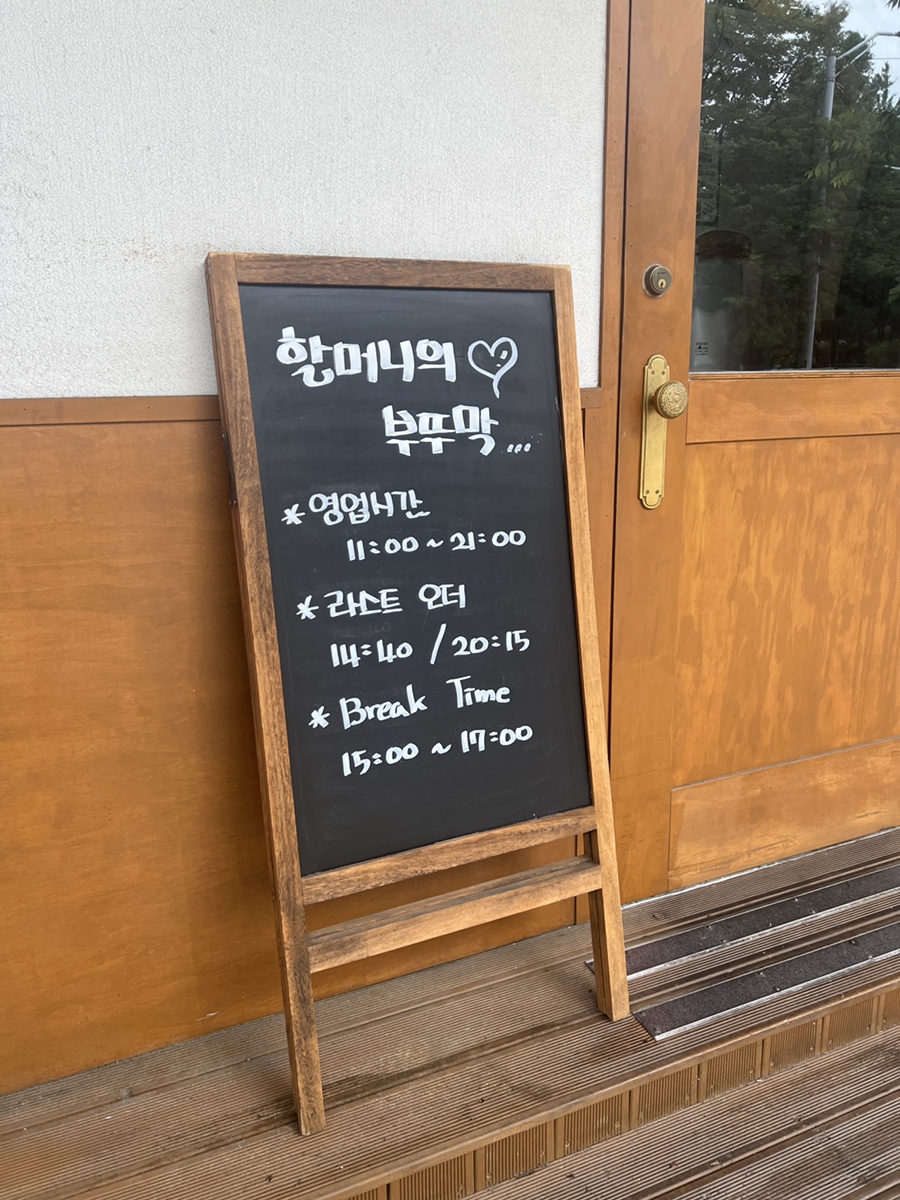 할머니의
부뚜막...
*영업시간
11:00 ~ 21:00
*라스트 오더
14:40 / 20:15
*Break Time
15:00 ~ 17:00